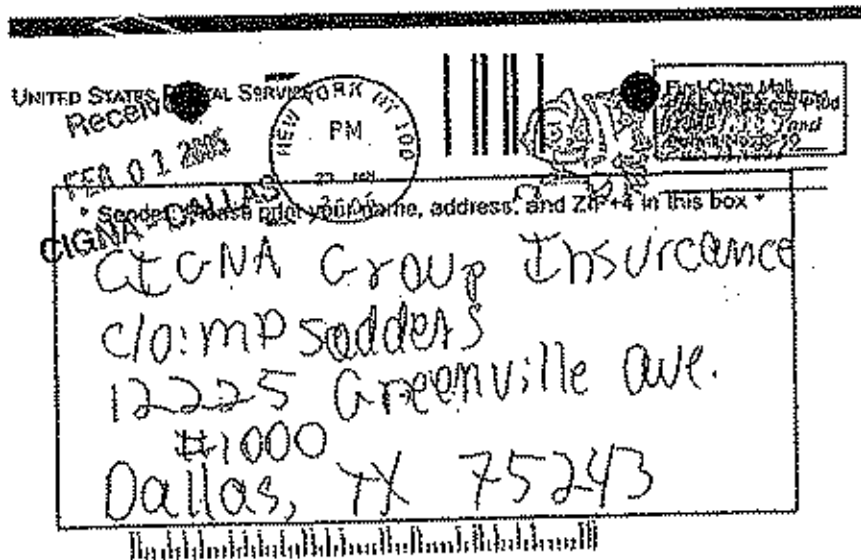 UNITED STATES POSTAL SERVICE
First-Class Mail
Received
FEB 01
CIGNA - DALLAS
NEW YORK NY 100
PM
* Sender: Please print your name, address, and ZIP+4 in this box *
CIGNA Group Insurcance
c/o: MP sadders
12225 Greenville ave.
#1000
Dallas, TX 75243